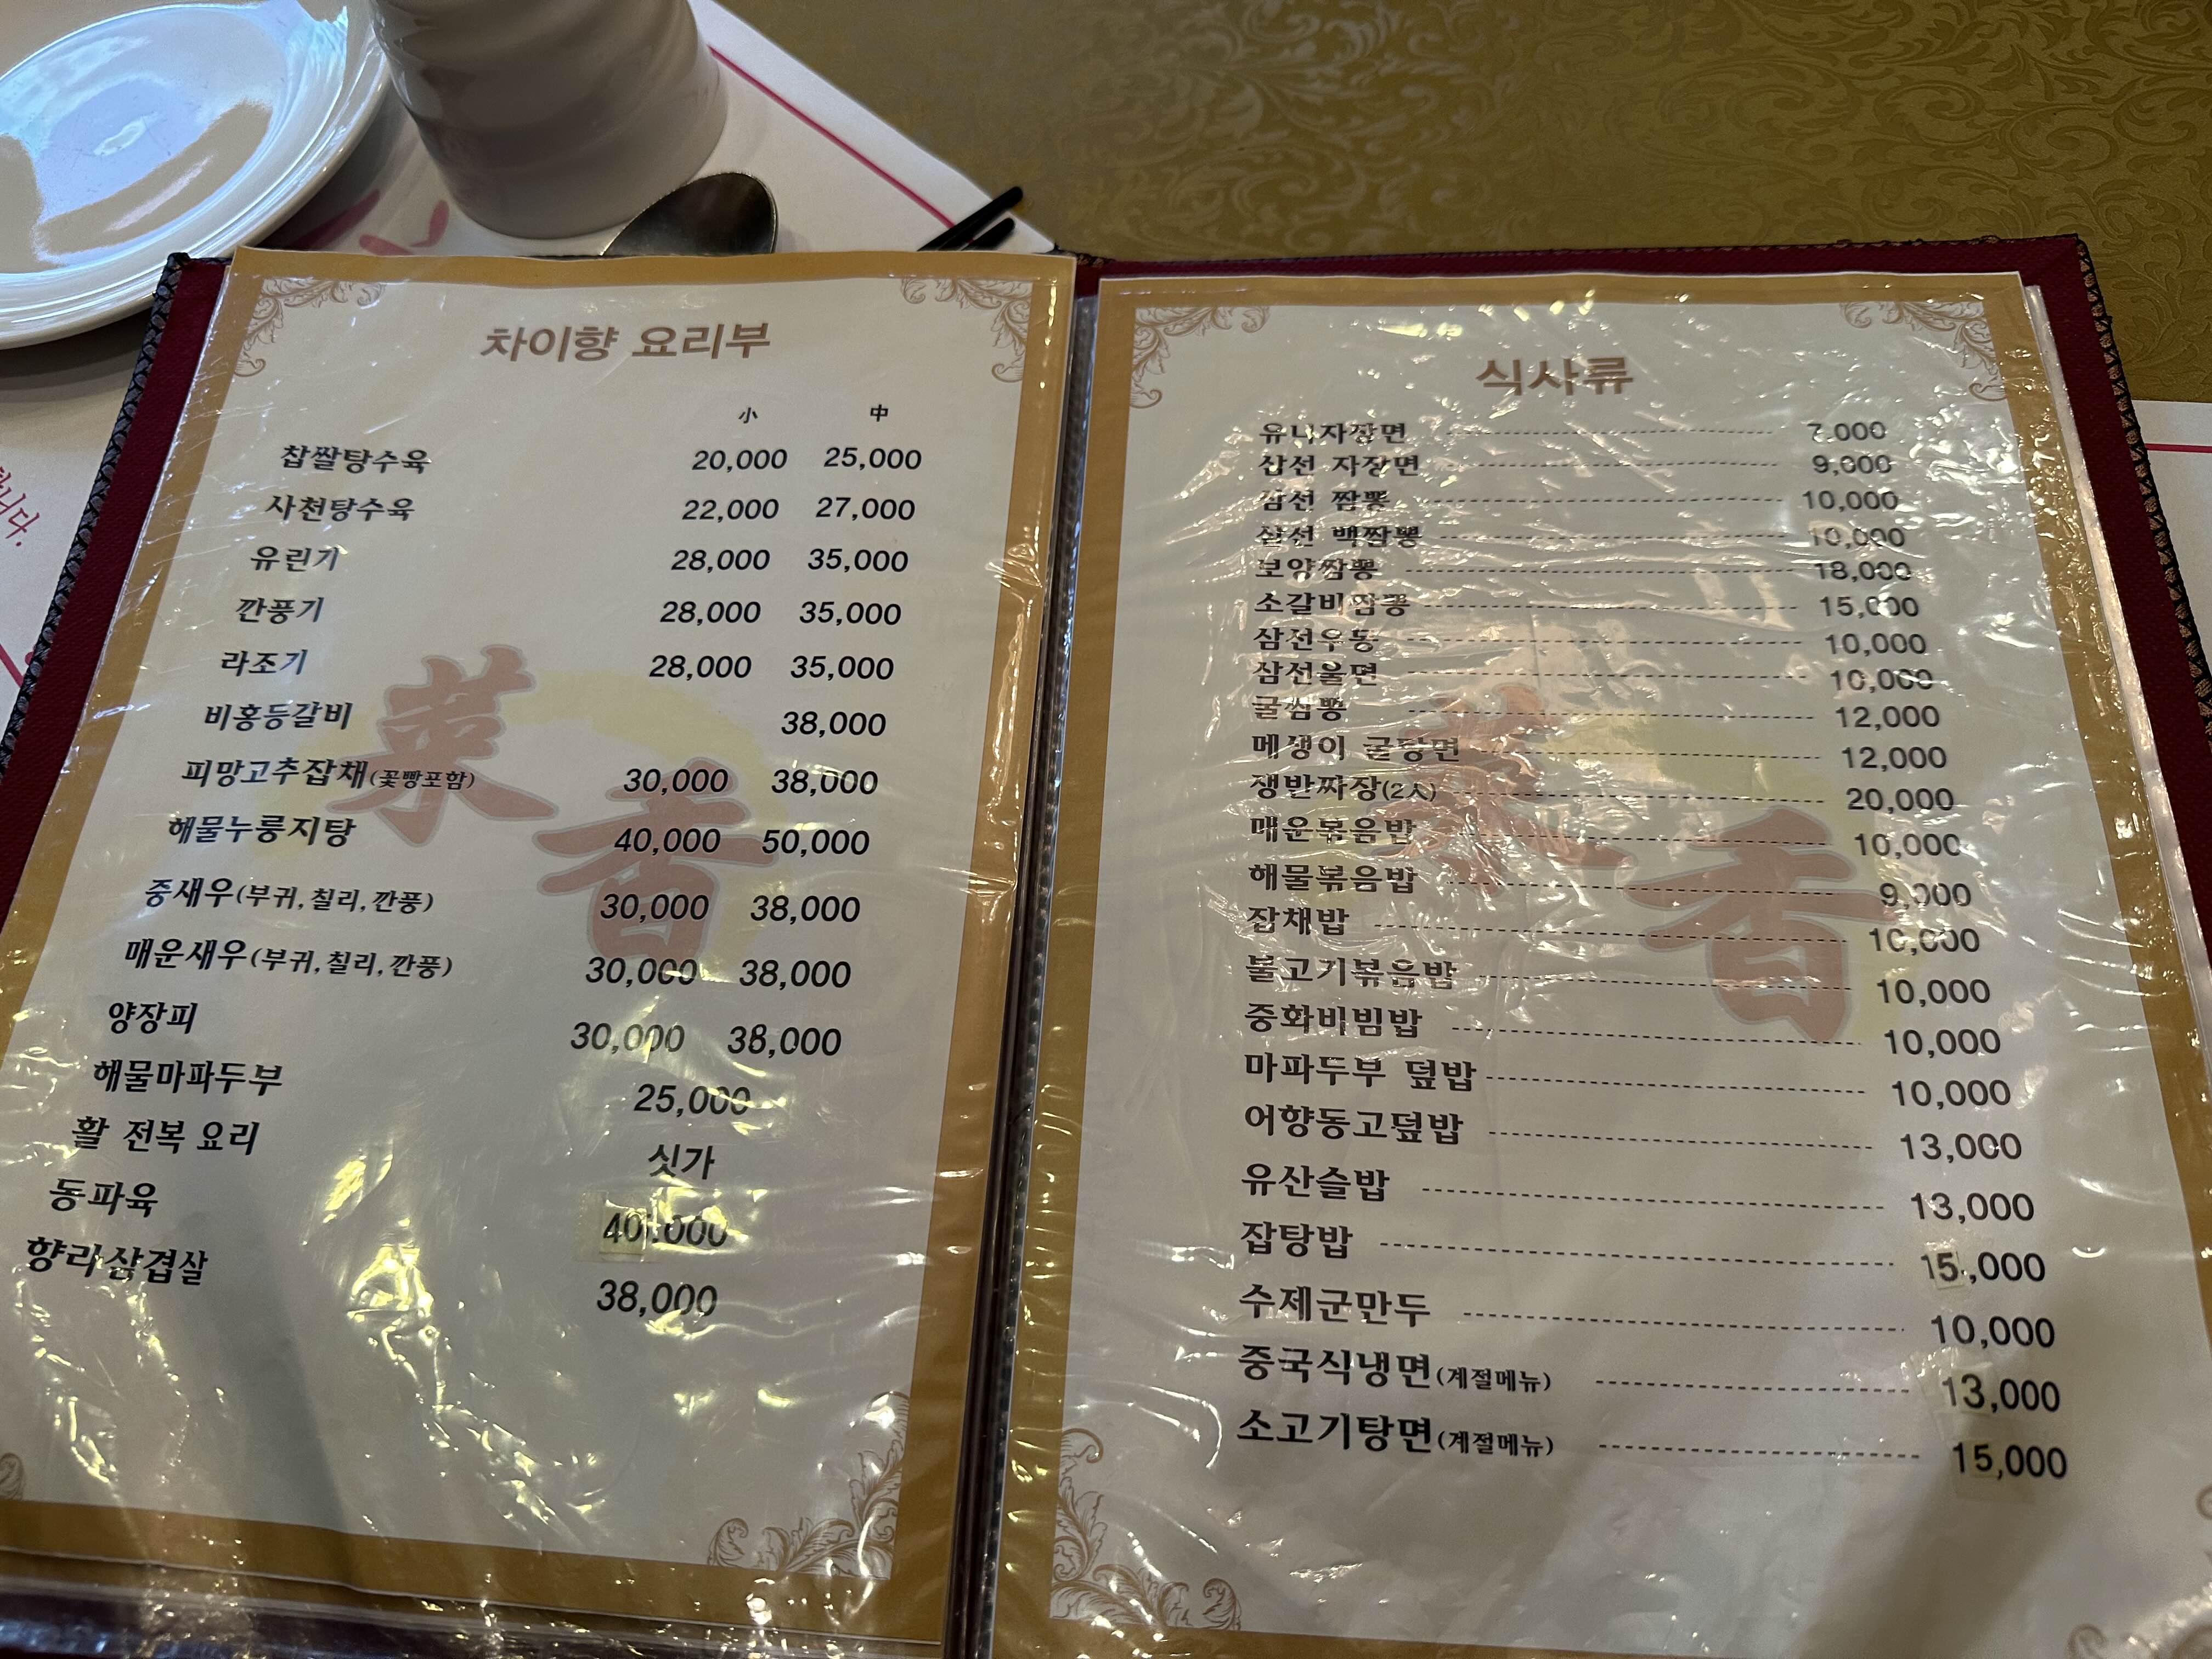 차이향 요리부
小 中
찹쌀탕수육 20,000 25,000
사천탕수육 22,000 27,000
유린기 28,000 35,000
깐풍기 28,000 35,000
라조기 28,000 35,000
비홍등갈비 38,000
피망고추잡채(꽃빵포함) 30,000 38,000
해물누룽지탕 40,000 50,000
중새우(부귀,칠리,깐풍) 30,000 38,000
매운새우(부귀,칠리,깐풍) 30,000 38,000
양장피 30,000 38,000
해물마파두부 25,000
활 전복 요리 싯가
동파육 40,000
향라삼겹살 38,000
菜香
식사류
유니자장면 7,000
삼선 자장면 9,000
삼선 짬뽕 10,000
삼선 백짬뽕 10,000
보양짬뽕 18,000
소갈비짬뽕 15,000
삼선우동 10,000
삼선울면 10,000
굴짬뽕 12,000
메생이 굴탕면 12,000
쟁반짜장(2人) 20,000
매운볶음밥 10,000
해물볶음밥 9,000
잡채밥 10,000
불고기볶음밥 10,000
중화비빔밥 10,000
마파두부 덮밥 10,000
어향동고덮밥 13,000
유산슬밥 13,000
잡탕밥 15,000
수제군만두 10,000
중국식냉면(계절메뉴) 13,000
소고기탕면(계절메뉴) 15,000
香